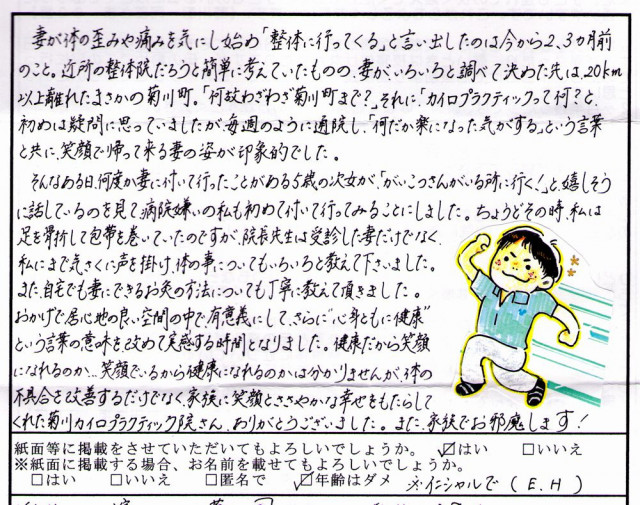 妻が体の歪みや痛みを気にし始め「整体に行ってくる」と言い出したのは今から2、3ヵ月前
のこと。近所の整体院だろうと簡単に考えていたものの、妻がいろいろと調べて決めた先は、20km
以上離れたまさかの菊川町。「何故わざわざ菊川町まで?」それに「カイロプラクティックって何?」と、
初めは疑問に思っていましたが、毎週のように通院し、「何だか楽になった気がする」という言葉
と共に、笑顔で帰って来る妻の姿が印象的でした。
そんなある日、何度か妻に付いて行ったことがある5歳の次女が、「がいこつさんがいる所に行く!」と、嬉しそう
に話しているのを見て、病院嫌いの私も初めて付いて行ってみることにしました。ちょうどその時、私は
足を骨折して包帯を巻いていたのですが、院長先生は受診した妻だけでなく、
私にまで気さくに声を掛け、体の事についてもいろいろと教えて下さいました。
また、自宅でも妻にできるお灸の方法についても丁寧に教えて頂きました。
おかげで居心地の良い空間の中で、有意義にして、さらに“心身ともに健康”
という言葉の意味を改めて実感する時間となりました。健康だから笑顔
になれるのか…笑顔でいるから健康になれるのかは分かりませんが、体の
不具合を改善するだけでなく、家族に笑顔とささやかな幸せをもたらして
くれた菊川カイロプラクティック院さん、ありがとうございました。また、家族でお邪魔します!
紙面等に掲載をさせていただいてもよろしいでしょうか。 ☑はい □いいえ
※紙面に掲載する場合、お名前を載せてもよろしいでしょうか。
□はい □いいえ □匿名で ☑年齢はダメ ※イニシャルで (E.H)